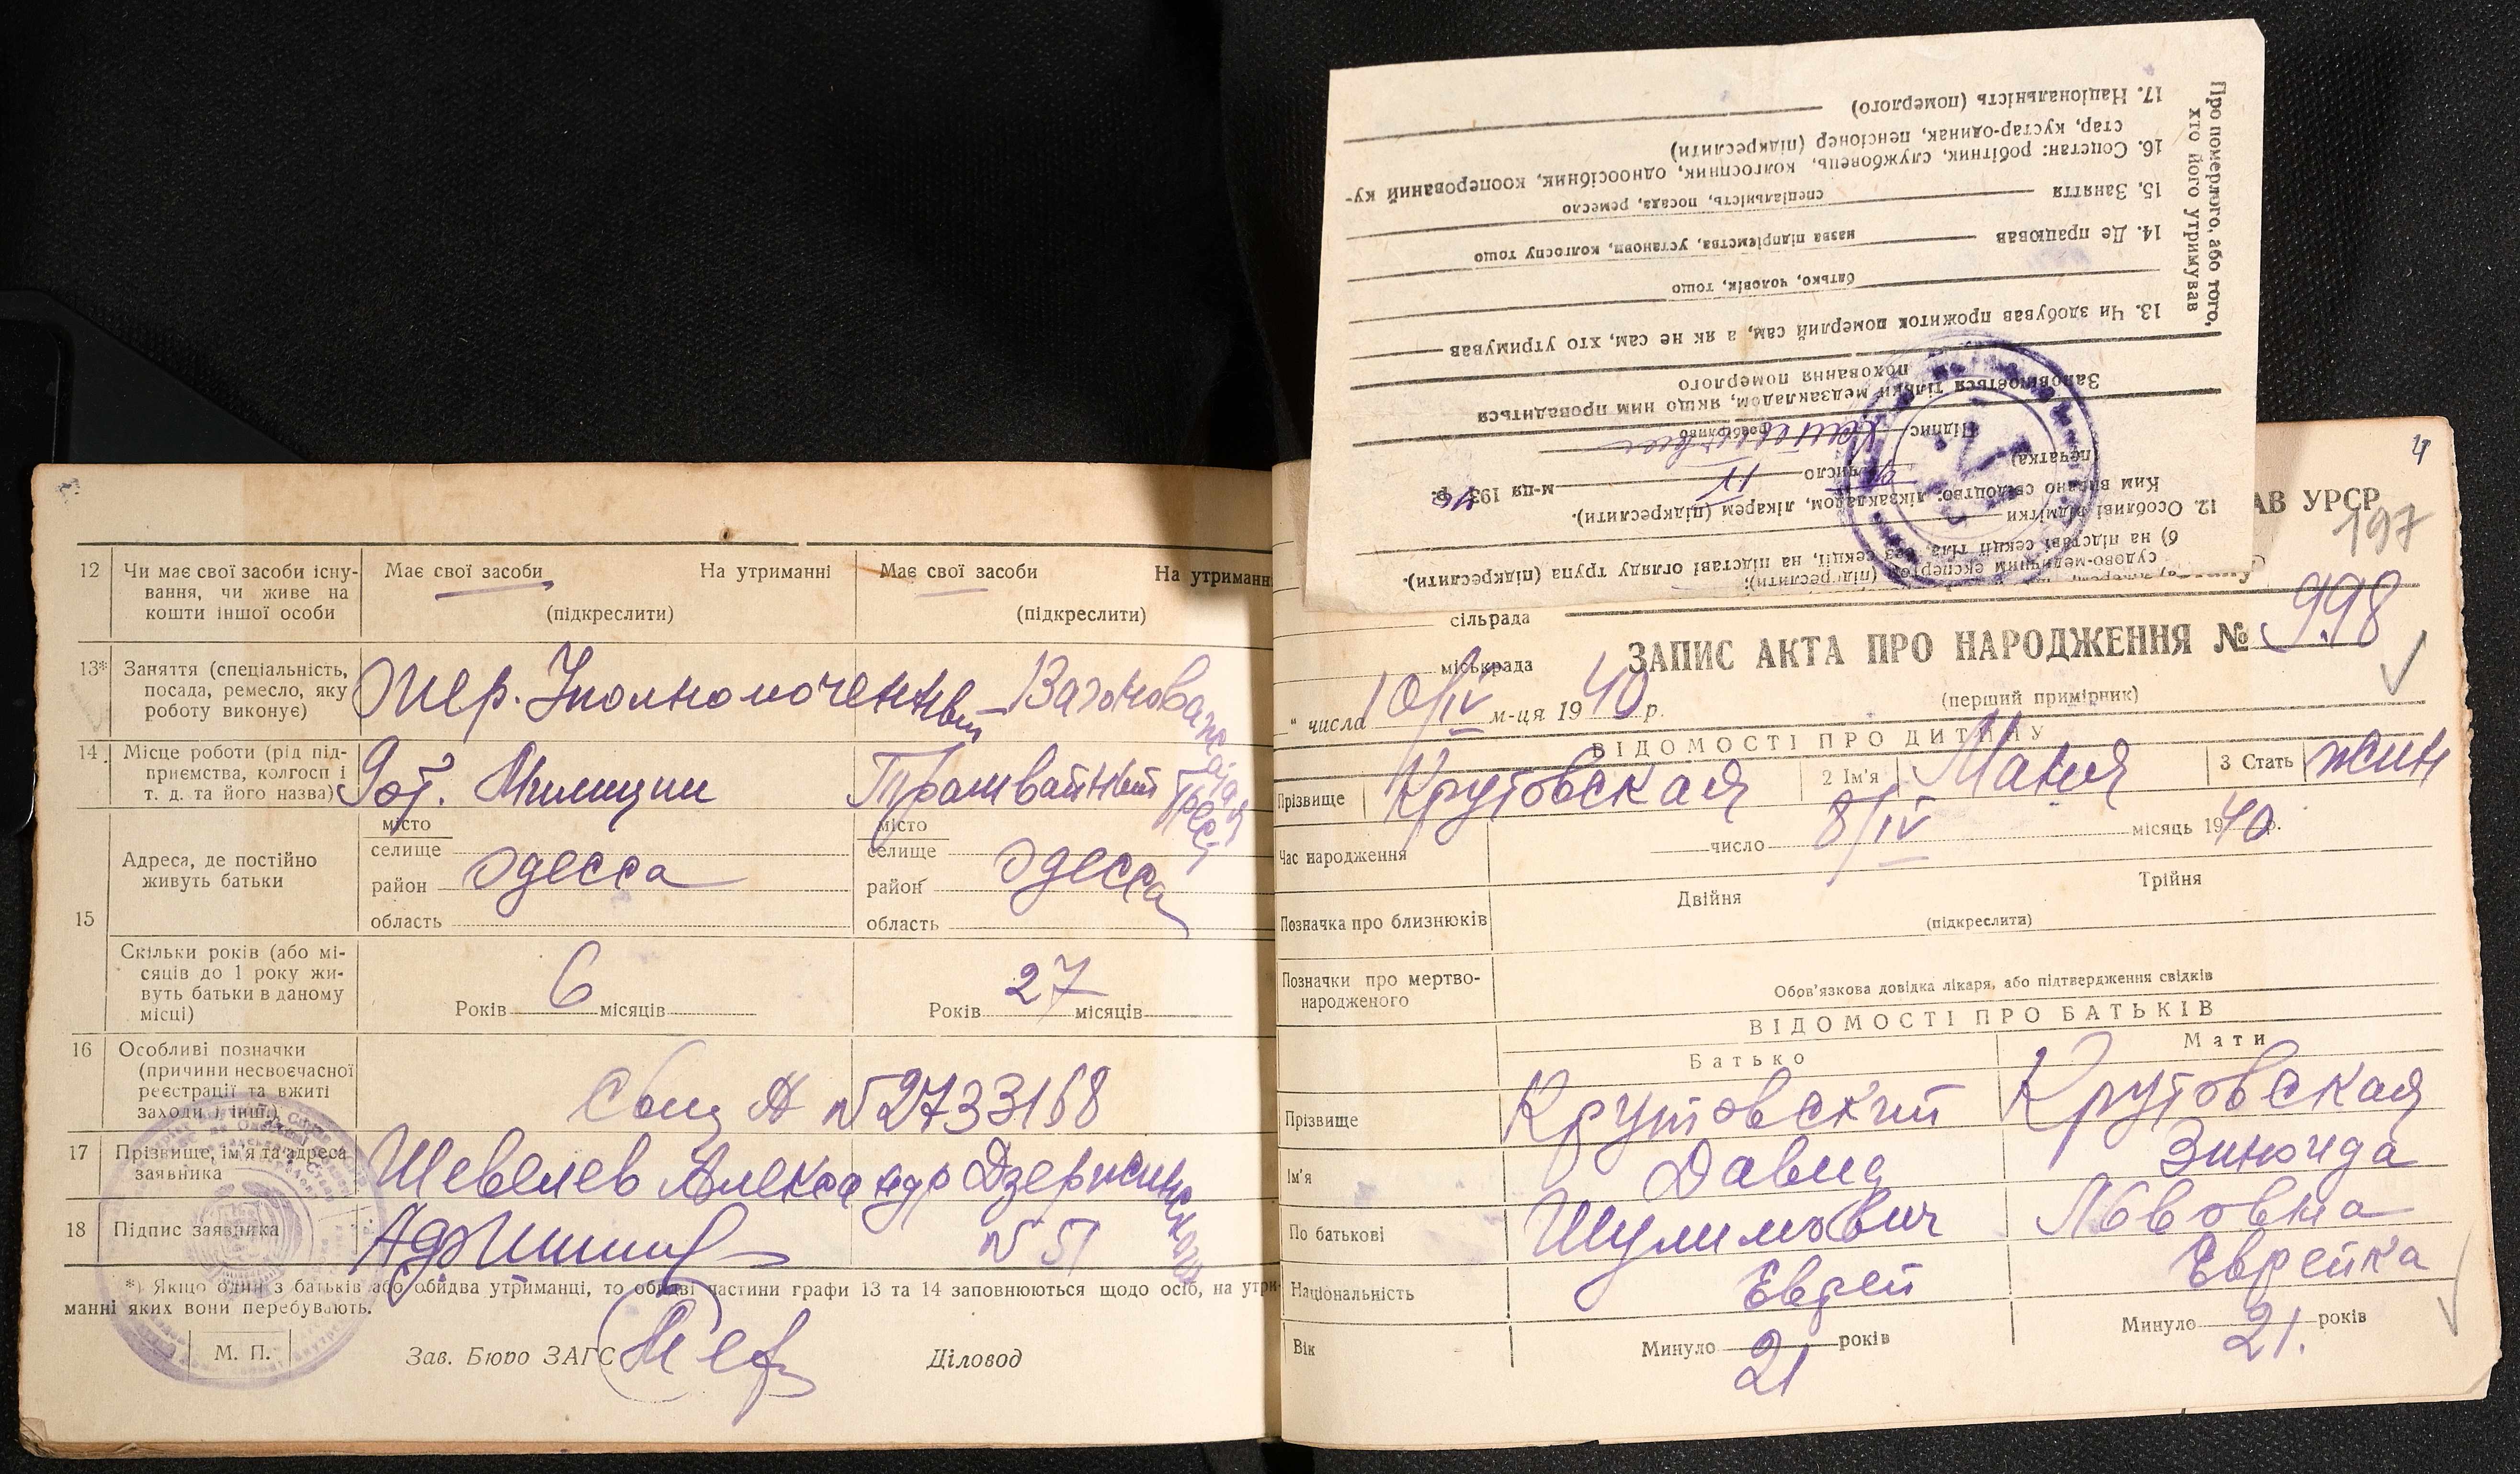 Про померлого, або того,
хто його утримував
17. Національність (померлого)
16. Соцстан: робітник, службовець, колгоспник, одноосібник, кооперований ку-
стар, кустар-одинак, пенсіонер (підкреслити)
15. Заняття
спеціальність, посада, ремесло
14. Де працював
назва підприємства, установи, колгоспу тощо
батько, чоловік, тощо
13. Чи здобував прожиток померлий сам, а як не сам, хто утримував
поховання померлого
Заповнюється тільки медзакладом, якщо ним провадиться
Підпис
розбірливо
(печатка)
число IV м-ця 1940 р.
Ким видано свідоцтво: лікзакладом, лікарем (підкреслити).
12. Особливі відмітки
б) на підставі секції тіла, без секції, на підставі огляду трупа (підкреслити).
судово-медичним експертом (підкреслити);
12 Чи має свої засоби існу-
вання, чи живе на
кошти іншої особи
Має свої засоби На утриманні
(підкреслити)
Має свої засоби На утриманні
(підкреслити)
13* Заняття (спеціальність,
посада, ремесло, яку
роботу виконує)
Опер. Уполномоченный Вагоновожатая
14. Місце роботи (рід під-
приємства, колгосп і
т. д. та його назва)
Гот. Милиции Трамвайный Трест
15 Адреса, де постійно
живуть батьки
місто
селище
район Одесса
область
місто
селище
район Одесса
область
Скільки років (або мі-
сяців до 1 року жи-
вуть батьки в даному
місці)
Років 6 місяців
Років 27 місяців
16 Особливі позначки
(причини несвоєчасної
реєстрації та вжиті
заходи і інш.)
№ 2733168
17 Прізвище, ім'я та адреса
заявника
Шевелев Александр Дзержинского
№ 51
18 Підпис заявника
*) Якщо один з батьків або обидва утриманці, то обидві частини графи 13 та 14 заповнюються щодо осіб, на утри-
манні яких вони перебувають.
М. П.
Зав. Бюро ЗАГС
Діловод
4
АВ УРСР
197
сільрада
міськрада
ЗАПИС АКТА ПРО НАРОДЖЕННЯ № 998
(перший примірник)
" числа 10/IV м-ця 1940 р.
ВІДОМОСТІ ПРО ДИТИНУ
Прізвище Крутовская 2 Ім'я Маня 3 Стать жин
Час народження число 8/IV місяць 1940 р.
Позначка про близнюків Двійня Трійня
(підкреслити)
Позначки про мертво-
народженого
Обов'язкова довідка лікаря, або підтвердження свідків
ВІДОМОСТІ ПРО БАТЬКІВ
Батько Мати
Прізвище Крутовский Крутовская
Ім'я Давид Зинаида
По батькові Шулимович Львовна
Національність Еврей Еврейка
Вік Минуло 21 років Минуло 21. років